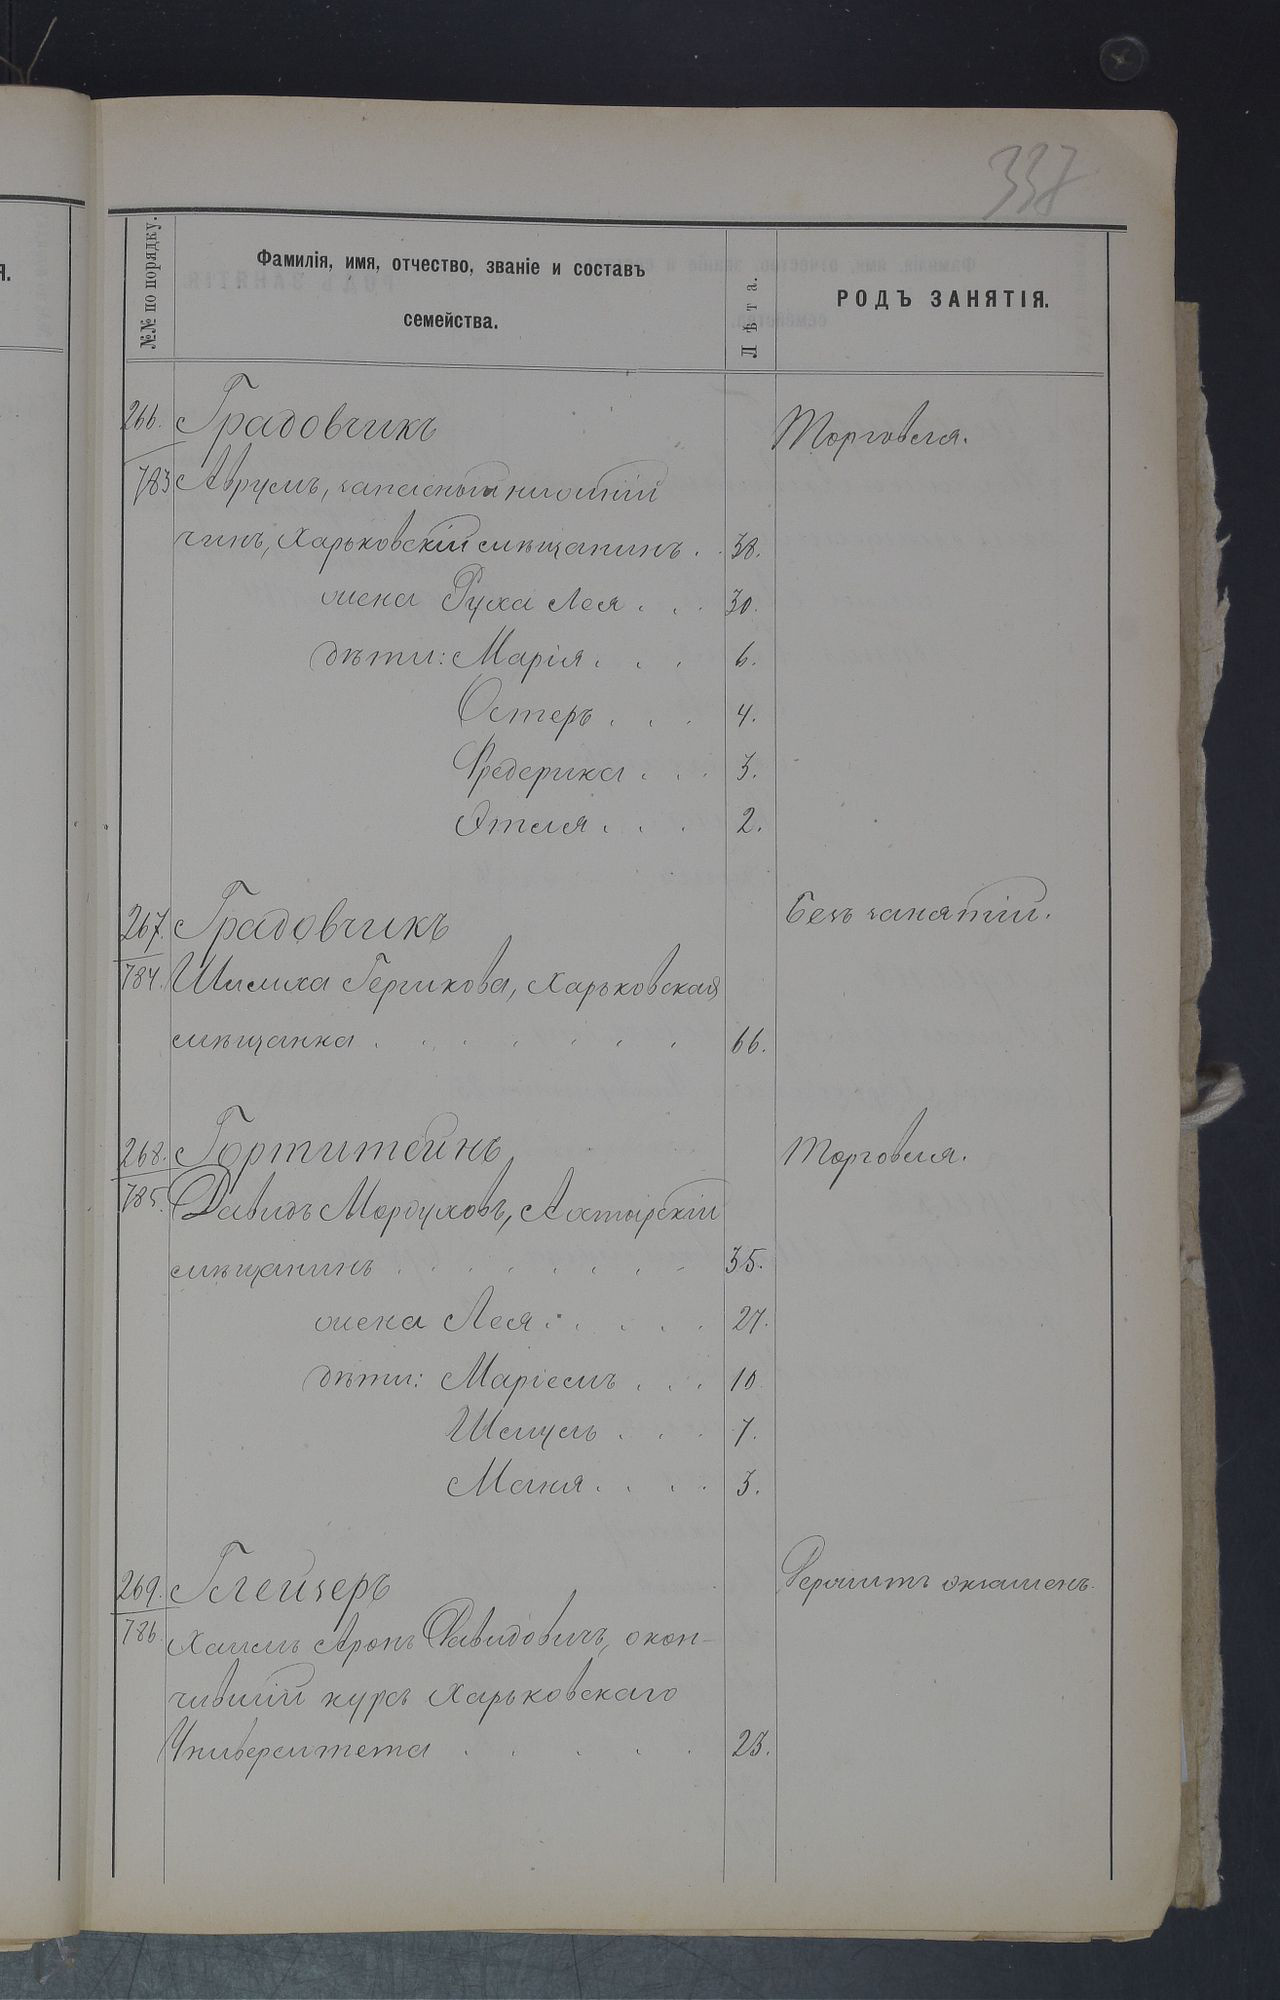 338
№№ по порядку.
Фамилія, имя, отчество, званіе и составъ
семейства.
Лѣта.
РОДЪ ЗАНЯТІЯ.
266. Градовчикъ Торговля.
783 Аврумъ, запасный нижній
чинъ, Харьковскій мѣщанинъ . . 38.
жена Руха Лея . . . 30.
дѣти: Марія . . . 6.
Эстеръ . . . 4.
Фредерика . . . 3.
Этля . . . 2.
267. Градовчикъ Безъ занятій.
784. Шлиха Гершкова, Харьковская
мѣщанка . . . . . . . 66.
268. Гортштейнъ Торговля.
785. Давидъ Мордуховъ, Ахтырскій
мѣщанинъ . . . . . . . . 35.
жена Лея . . . . . 27.
дѣти: Маріемъ . . . 10
Шмуль . . . 7.
Маня . . . . 3.
269. Глейзеръ Держитъ экзаменъ.
786. Хаимъ Аронъ Давидовичъ, окон-
чившій курсъ Харьковскаго
Университета . . . . . 23.
Я.